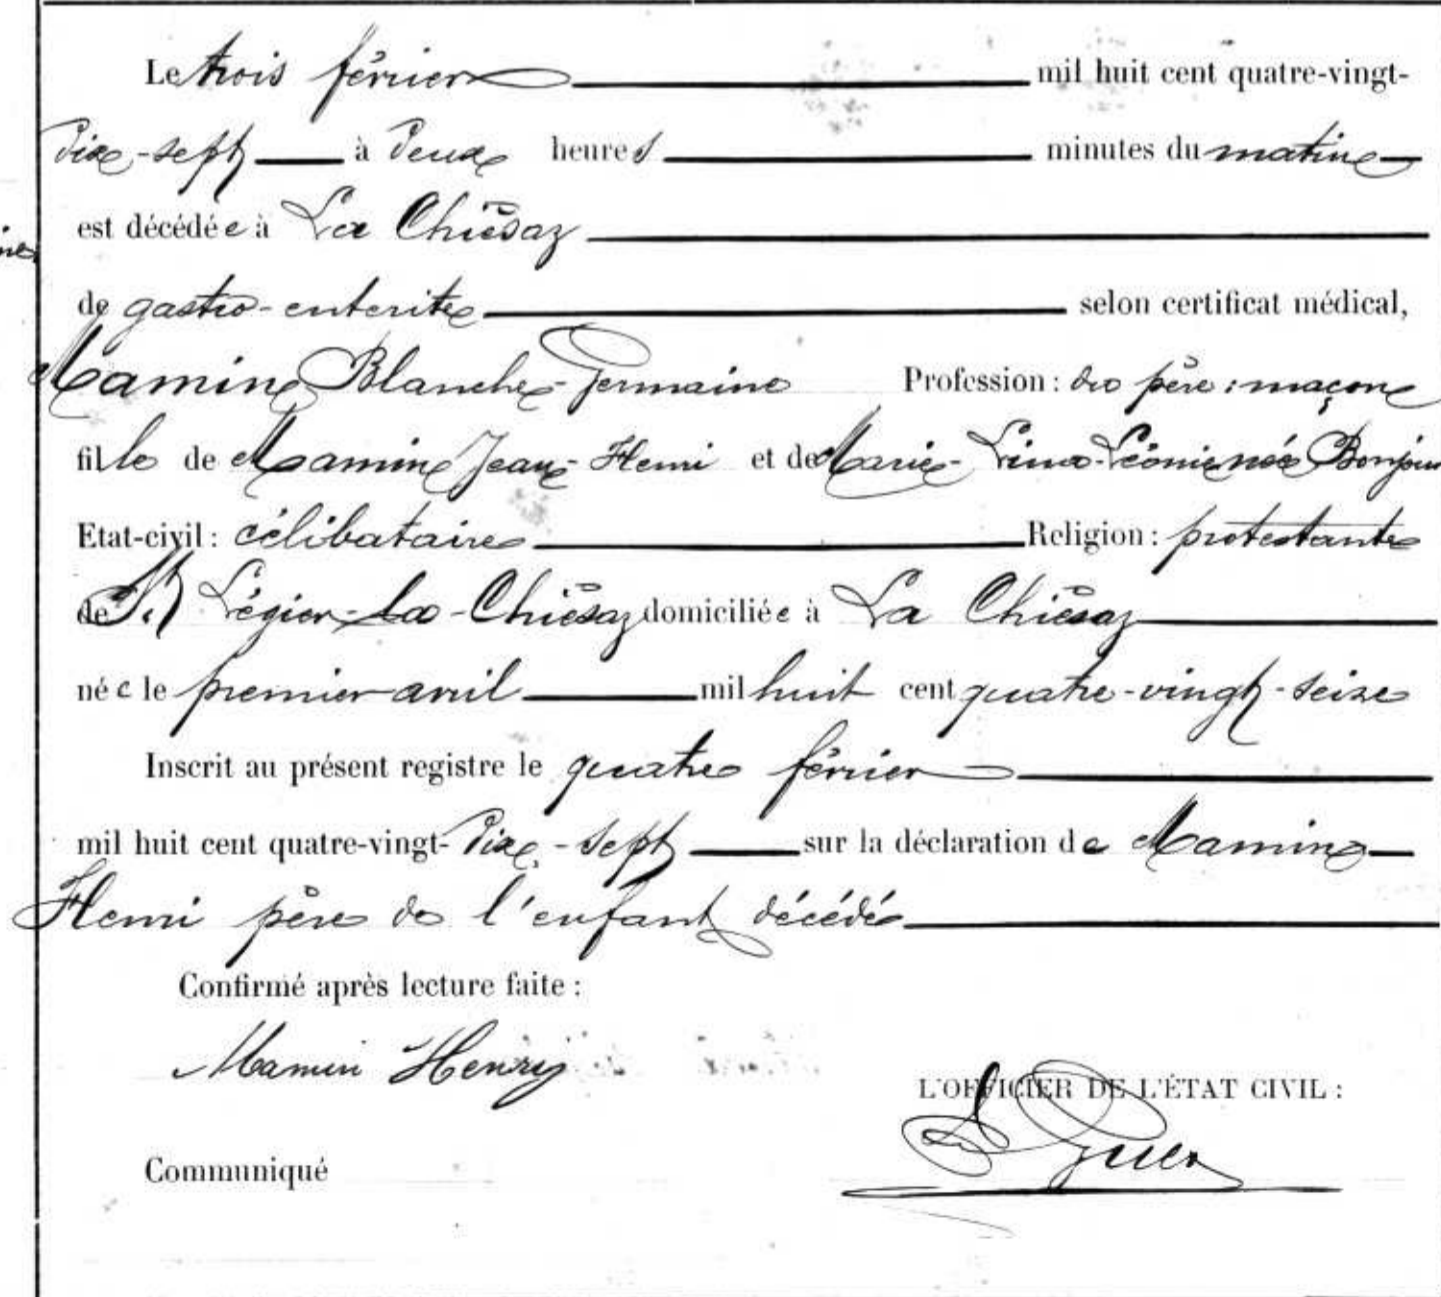 Le trois février mil huit cent quatre-vingt-
dix-sept à deux heures minutes du matin
est décédée à La Chiésaz
de gastro-enterite selon certificat médical,
Mamin Blanche-Germaine Profession : du père : maçon
fille de Mamin Jean-Henri et de Marie-Lina-Léonie née Bonjour
Etat-civil : célibataire Religion : protestante
de St Légier-La-Chiésaz domiciliée à La Chiésaz
née le premier avril mil huit cent quatre-vingt-seize
Inscrit au présent registre le quatre février
mil huit cent quatre-vingt-dix-sept sur la déclaration de Mamin
Henri père de l'enfant décédé
Confirmé après lecture faite :
Mamin Henry
L'OFFICIER DE L'ÉTAT CIVIL :
Communiqué